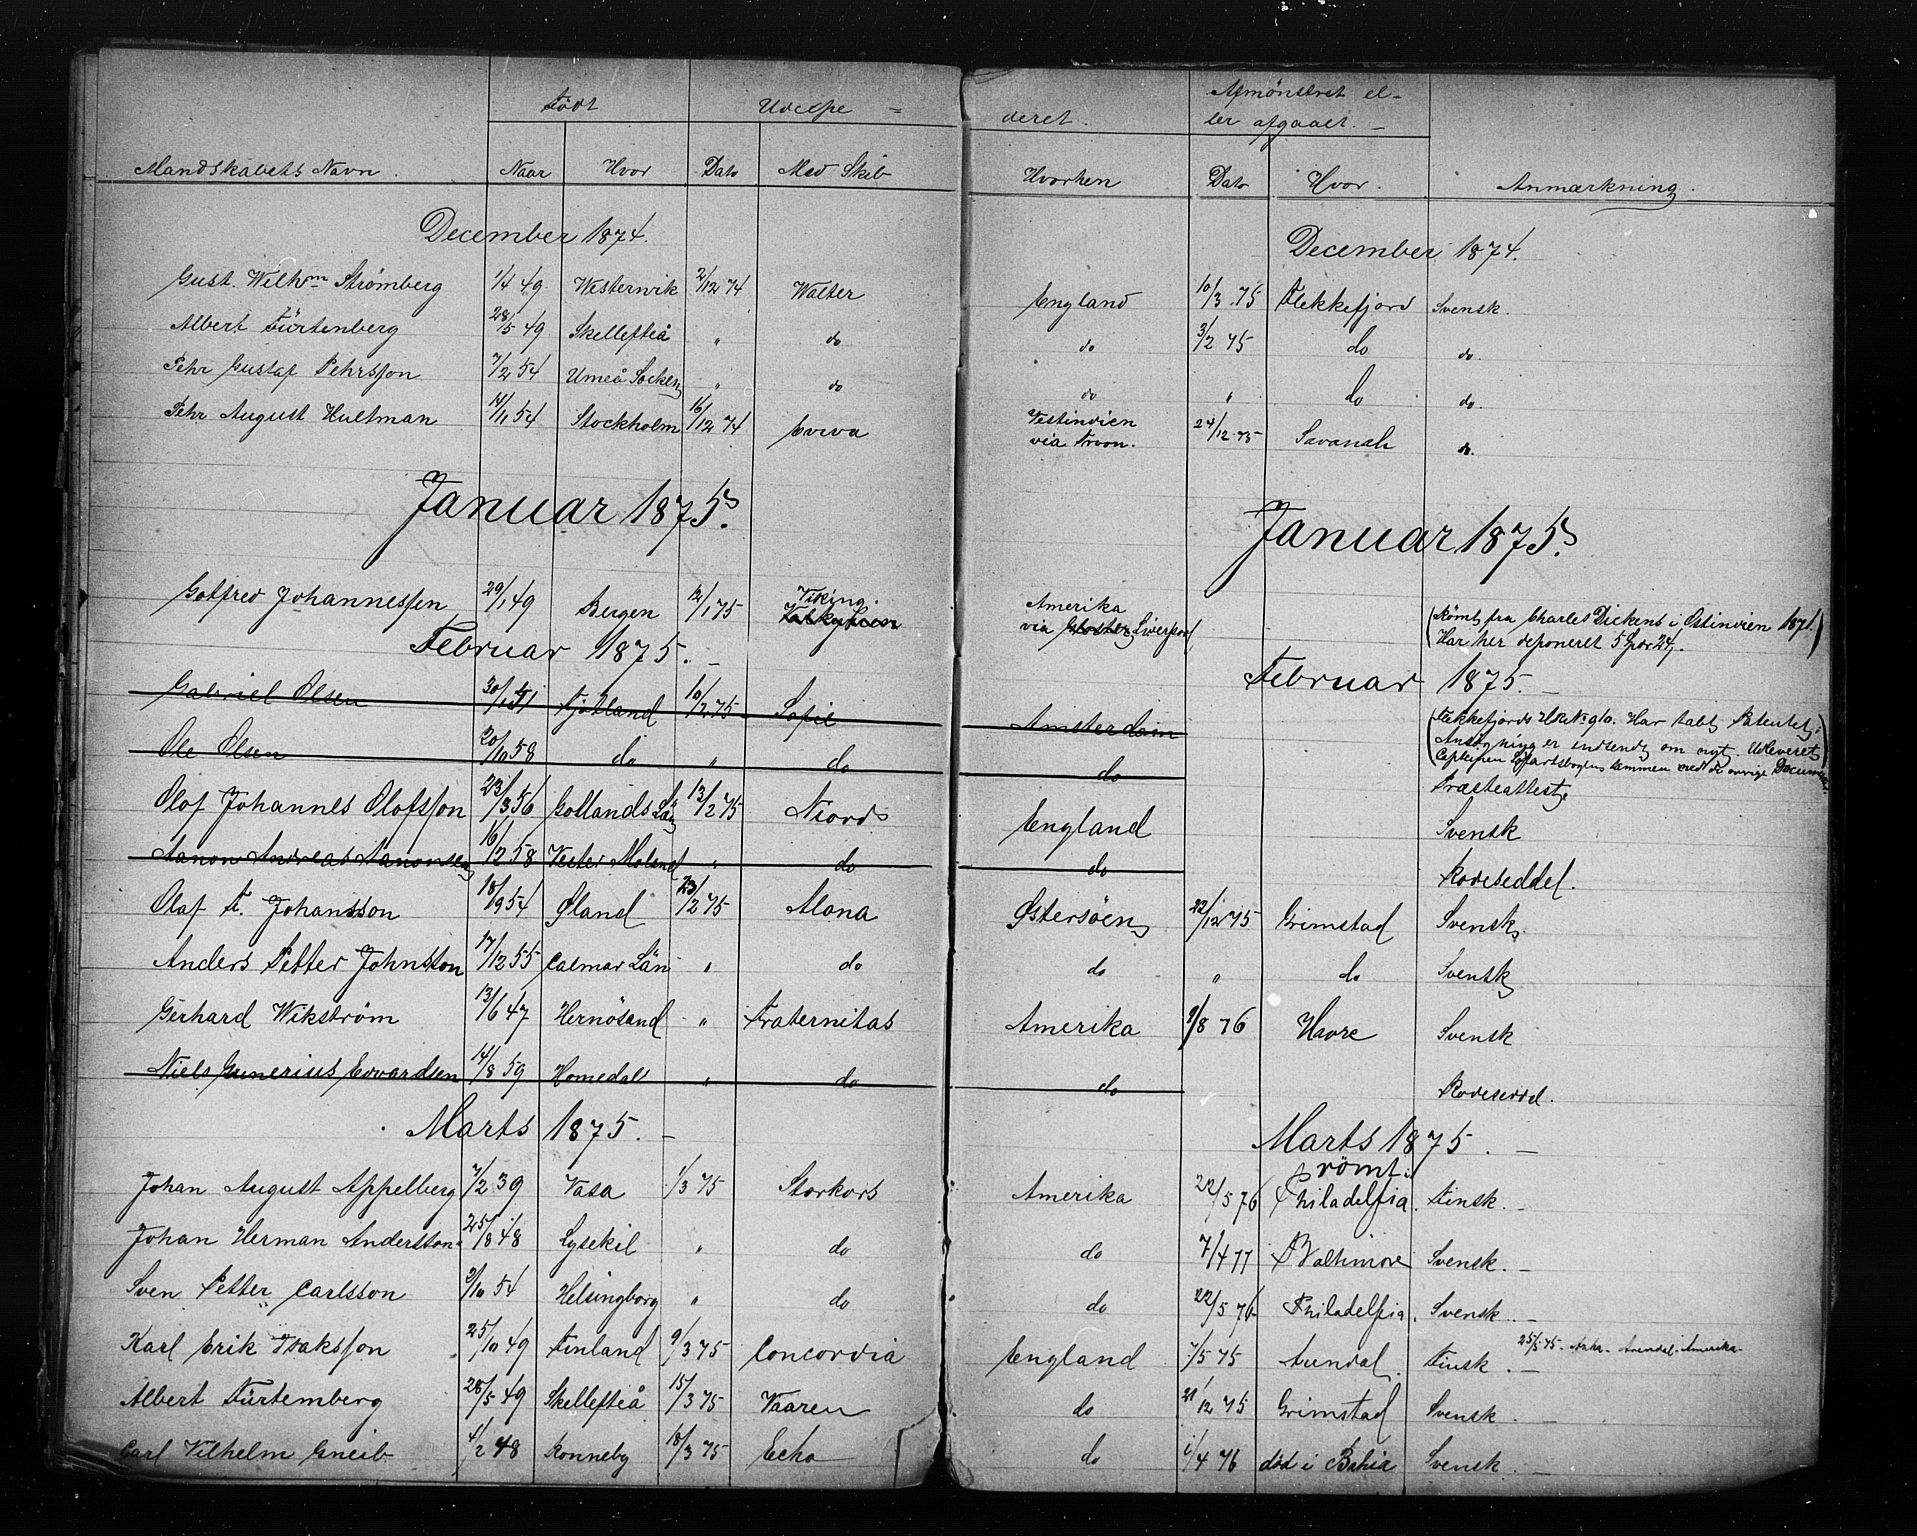 Født Udespe = deret. Afmønstret el-
ler afgaaet. -
Mandskabets Navn. Naar Hvor Dato Med Skib Hvorhen Dato Hvor. Anmærkning.
December 1874. December 1874.
Gust. Wilhm Strømberg 1/4 49 Westerwik 2/12 74 Walter England 10/3 75 Flekkefjord Svensk.
Albert Fürtenberg 28/5 49 Skellefteå " do do 3/2 75 do do.
Pehr Gustaf Pehrsson 7/2 54 Umeå Socken " do do " do do.
Pehr August Hultman 14/11 54 Stockholm 16/12 74 Eviva Vestindien
via Tvon. 24/12 75 Savanah do.
Januar 1875. Januar 1875.
Gotfred Johannessen 29/1 49 Bergen 12/1 75 Viking. Amerika
via Gloster Liverpool (Rømt fra Charles Dickens i Ostindien 1871.)
(Har her deponeret 5 Spd 24/.
Februar 1875. - Februar 1875. -
Gabriel Olsen 30/1 51 Fjotland 10/2 75 Sofie Amsterdam (Flekkefjords No 910. Har tabt Patentet;
Ansøgning er indsendt om nyt. Udleveret
Captainen Søfartsbogen sammen med de øvrige Documenter.
Ole Olsen 20/10 58 do " do do Præsteattest.
Olof Johannes Olofsson 23/3 56 Gottlands Län 13/2 75 Niord England Svensk
Aanon Andreas Aanonsen 16/12 58 Vester Moland " do do Rodeseddel.
Olaf F. Johansson 18/9 54 Øland 23/2 75 Alona Østersøen 22/12 75 Grimstad Svensk.
Anders Petter Johnsson 17/12 55 Calmar Län " do do " do Svensk
Gerhard Wikström 13/6 47 Hernösand " Fraternitas Amerika 8/8 76 Havre Svensk
Niels Gunerius Edvardsen 14/8 59 Homedal " do do Rodeseddel.
Marts 1875. - Marts 1875. -
Johan August Appelberg 7/2 39 Vasa 1/3 75 Storkors Amerika 22/5 76 römt i
Philadelfia. Finsk. -
Johan Herman Andersson 25/8 48 Lysekil " do do 7/4 77 Baltimore Svensk. -
Sven Petter Carlsson 2/10 54 Helsingborg " do do 22/5 76 Philadelfia. Svensk. -
Karl Erik Isaksson 25/10 49 Finland 9/3 75 Concordia England 7/5 75 Arendal. Finsk. - 25/5 75. Arendal. Amerika.
Albert Fürtemberg 28/5 49 Skellefteå 15/3 75 Vaaren do 21/12 75 Grimstad Svensk. -
Carl Vilhelm Gneib 4/2 48 Ronneby 18/3 75 Echo do 1/4 76 død i Bahia Svensk. -